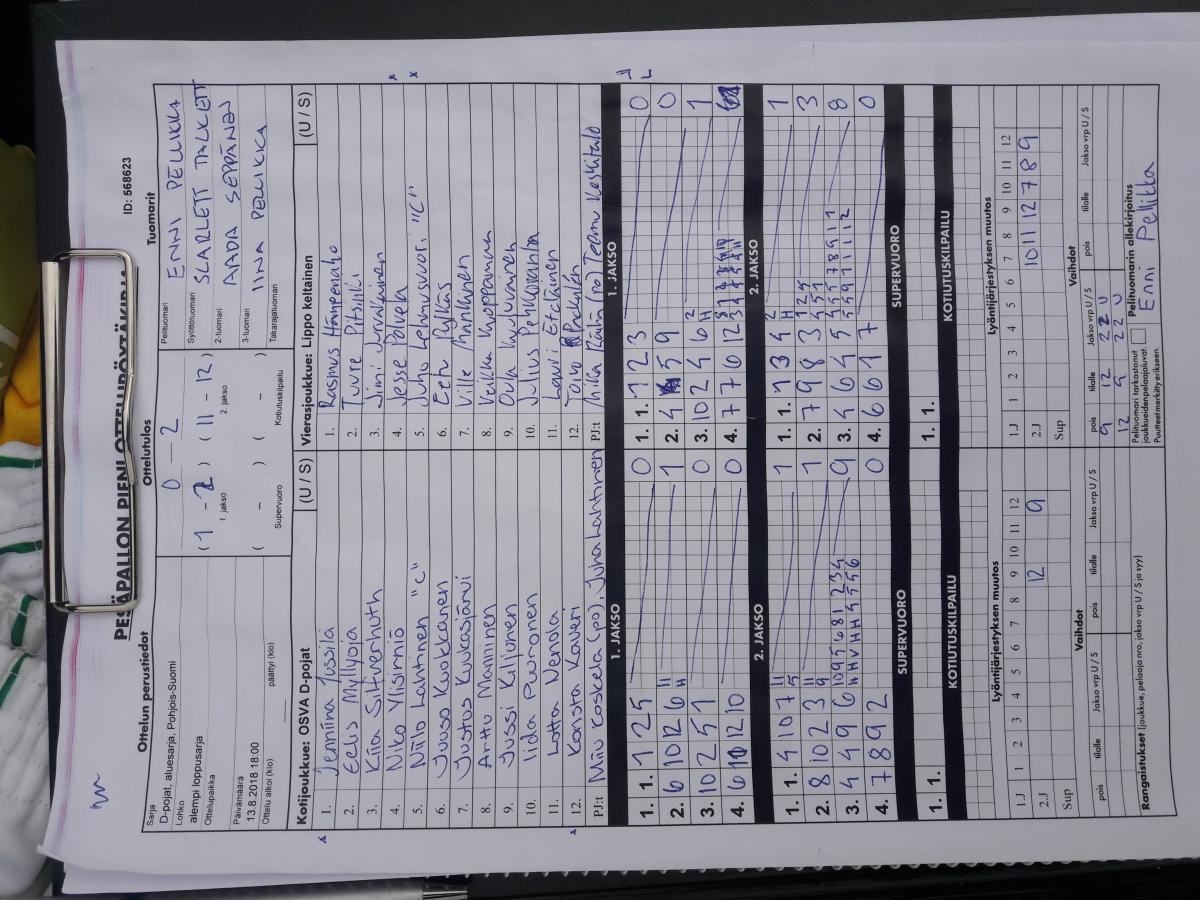 PESÄPALLON PIENI OTTELUPÖYTÄKIRJA
ID: 568623
Ottelun perustiedot
Sarja
D-pojat, aluesarja, Pohjois-Suomi
Lohko
alempi loppusarja
Ottelupaikka
Päivämäärä
13.8.2018 18:00
Ottelu alkoi (klo) päättyi (klo)
Ottelutulos
0 – 2
(1 - 2) (11 - 12)
1. jakso 2. jakso
( – ) ( – )
Supervuoro Kotiutuskilpailu
Tuomarit
Pelituomari ENNI PELLIKKA
Syöttötuomari SCARLETT TALKETT
2-tuomari AADA SEPPÄNEN
3-tuomari IINA PELLIKKA
Takarajatuomari
Kotijoukkue: OSVA D-pojat (U / S)
1. Jenniina Jussila
2. Eelis Myllyoja
3. Kiia Sihvenhuth
4. Niko Ylisirniö
5. Niilo Lahtinen "C"
6. Juuso Kuokkanen
7. Justus Kuukasjärvi
8. Arttu Manninen
9. Jussi Kiljunen
10. Iida Puronen
11. Lotta Nenola
12. Konsta Kaveri
PJ:t Miu Koskela (po), Juha Lahtinen
Vierasjoukkue: Lippo keltainen (U / S)
1. Rasmus
2. Tuure Pitsinki
3. Jimi Jorvalainen
4. Jesse Polvela
5. Juho "C"
6. Eetu Pylkäs
7. Ville
8. Veikka Kuoppamaa
9. Oula Kuluvainen
10. Julius
11. Lauri Eteläinen
12. Toivo
PJ:t (po) Teemu Keskitalo
1. JAKSO 1. JAKSO
1. 1. 1 2 5 0 1. 1. 1 2 3 0
2. 6 10 12 6 11 H 1 2. 4 5 9 0
3. 10 2 5 1 0 3. 10 2 4 6 2 H 1
4. 6 12 10 0 4. 7 7 6 12
2. JAKSO 2. JAKSO
1. 1. 4 10 7 11 5 1 1. 1. 1 3 4 2 H 1
2. 8 10 2 3 11 9 1 2. 7 9 8 3 1 2 5 4 5 7 3
3. 4 4 9 6 10 9 5 6 8 1 2 3 4 9 3. 4 6 4 5 8
4. 7 8 9 2 0 4. 6 6 1 7 0
SUPERVUORO SUPERVUORO
1. 1. 1. 1.
KOTIUTUSKILPAILU KOTIUTUSKILPAILU
Lyöntijärjestyksen muutos Lyöntijärjestyksen muutos
1.J 1 2 3 4 5 6 7 8 9 10 11 12 1.J 1 2 3 4 5 6 7 8 9 10 11 12
2.J 12 9 2.J 10 11 12 7 8 9
Sup Sup
Vaihdot Vaihdot
pois tilalle Jakso vrp U / S pois tilalle Jakso vrp U / S pois tilalle Jakso vrp U / S pois tilalle Jakso vrp U / S
9 2 2 2 U
12 9 2 2 U
Rangaistukset (joukkue, pelaaja nro, jakso vrp U / S ja syy)
Pelituomari tarkastanut
joukkueiden pelaajaluvat.
Puutteet merkitty erikseen.
Pelituomarin allekirjoitus
Enni Pellikka